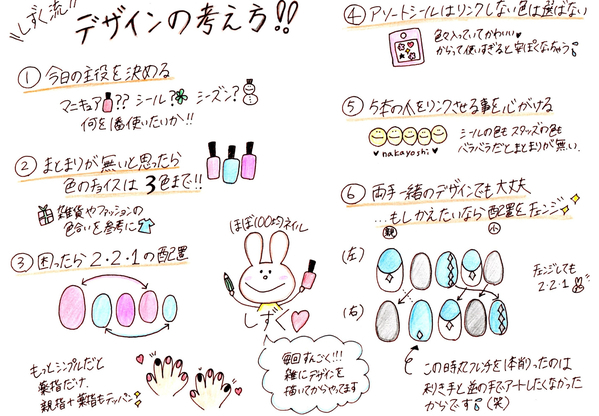 しずく流
デザインの考え方!!
① 今日の主役を決める
マニキュア?? シール? シーズン?
何を1番使いたいか!!
② まとまりが無いと思ったら
色のチョイスは3色まで!!
雑貨やファッションの
色合いを参考に
③ 困ったら2・2・1の配置
もっとシンプルだと
薬指だけ、
親指+薬指もテッパン
ほぼ100均ネイル
しずく
毎回すんごく!!!
雑にデザインを
描いてからやってます
④ アソートシールはリンクしない色は選ばない
色々入っていてかわいい
からって使いすぎると安ぽくなっちゃう
⑤ 5本の爪をリンクさせる事を心がける
nakayoshi
シールの色もスタッズの色も
バラバラだとまとまりが無い
⑥ 両手一緒のデザインでも大丈夫
…もしかえたいなら配置をチェンジ
親
小
(左)
(右)
チェンジしても
2・2・1
この時丸フレンチを1本削ったのは
利き手と逆の手でアートしたくなかった
からです(笑)